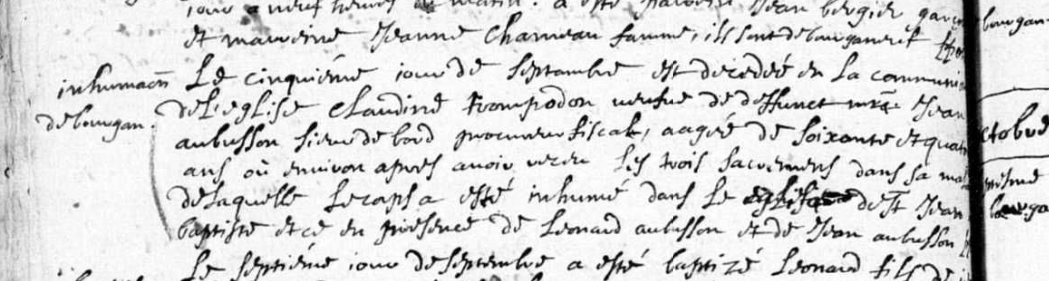 jour a neuf heures du matin. a esté parrein Jean bergier garcon
et mareine Jeanne Chameau famme, ils sont de bourganeuf
inhumaon̄ de bourgan.
Le cinquiéme jour de septambre est decedeé en La communion
de L'eglise Claudine Rompodon veufve de deffunct mr̄e Jean
aubusson sieur de bord procureur fiscal, aageé de soixante et quatre
ans où environ apres avoir receu les trois sacremens dans sa mai
de Laquelle Le corps a esté inhumé dans Le de St Jean
baptiste et ce en présence de Leonard aubusson et de Jean aubusson
Le septiéme jour de septembre a esté baptizé Leonard fils de
bourgan
ctobre
mesme